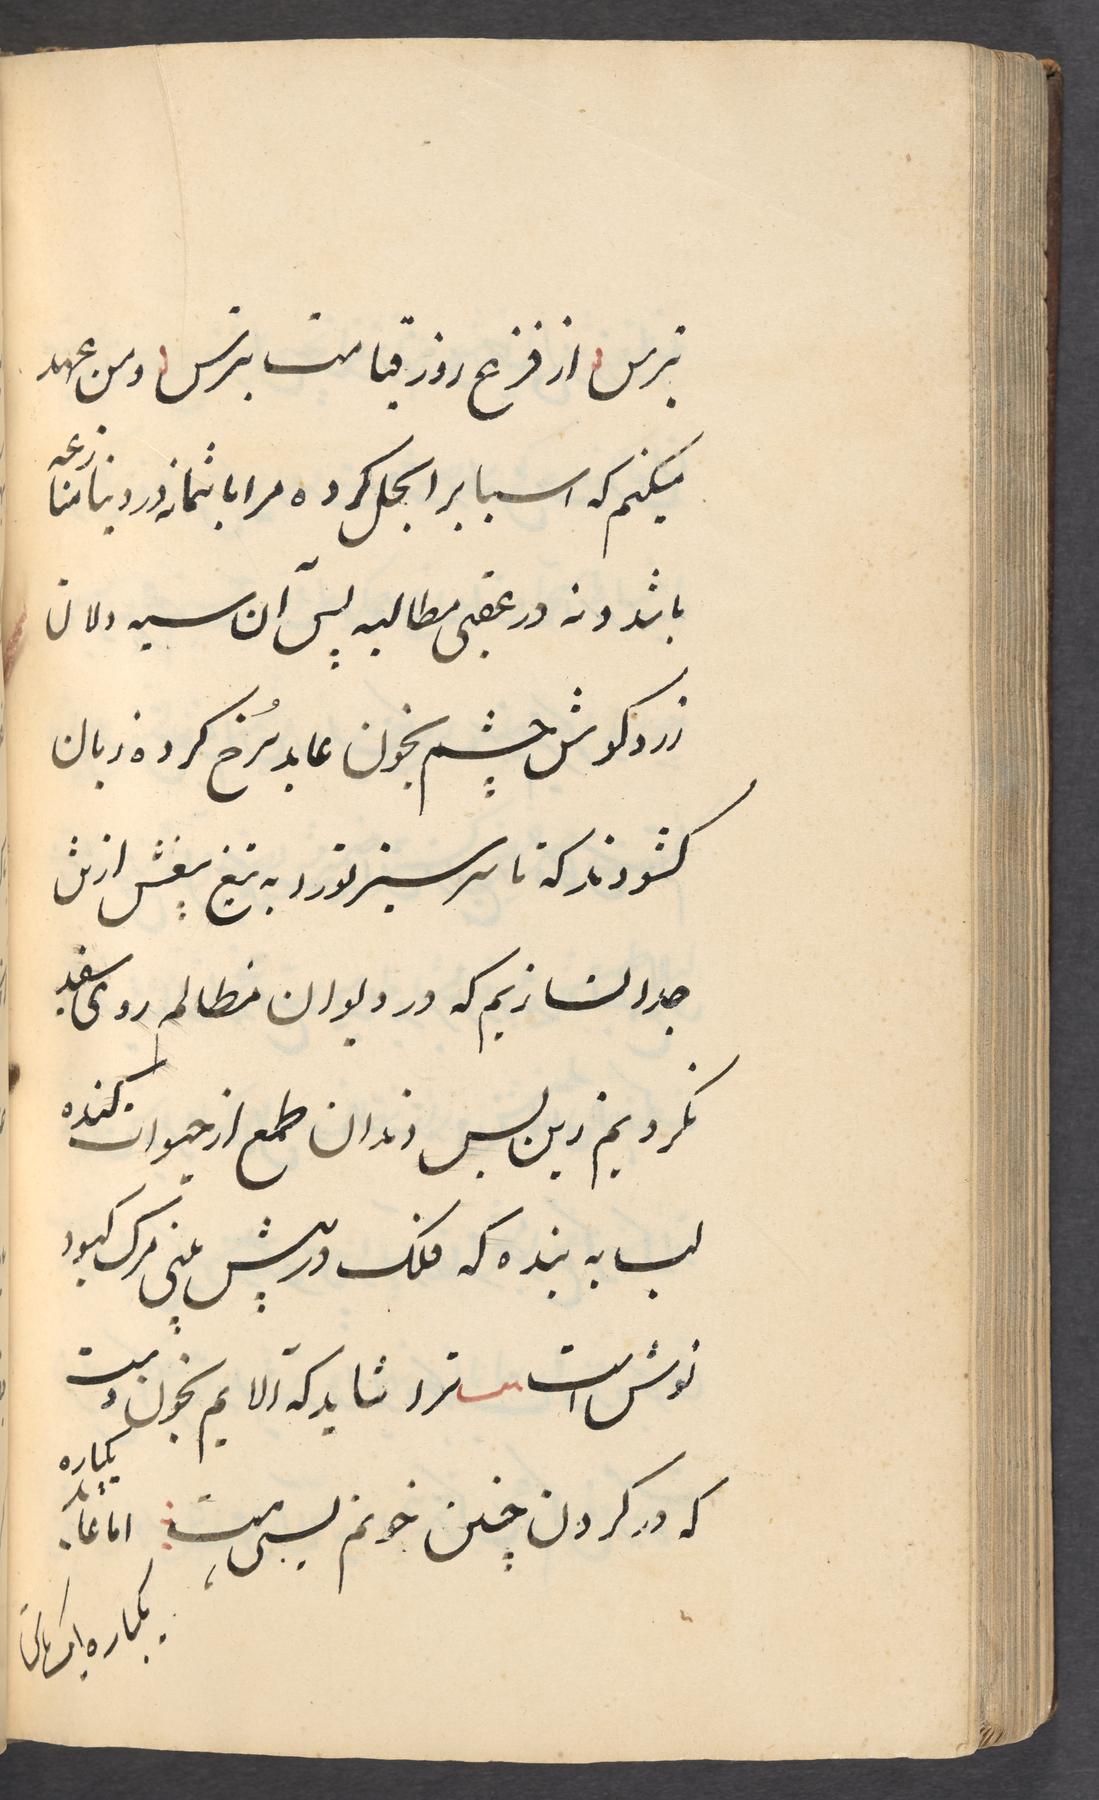 بترس از فزع روز قیامت بترس و من عهد
میکنم که اسیا برا بحل کرده مرا با شما نه در دنیا منازعه
باشد و نه در عقبی مطالبه پس آن سیه دلان
زرد گوش چشم بخون عابد سُرخ کرده زبان
کشودند که تا سر سبز تو رد به تیغ بنفش از تن
جدا نسازیم که در دیوان مظالم روی سفید
نگردیم زین پس دندان طمع از حیوان کنده
لب به بنده که فلک در پیش غنی مرک کبود
نوش است ترا شاید که آلایم بخون دست
که در گردن چنین خونم بسی هست اما عابد یکباره
یکباره این کمان